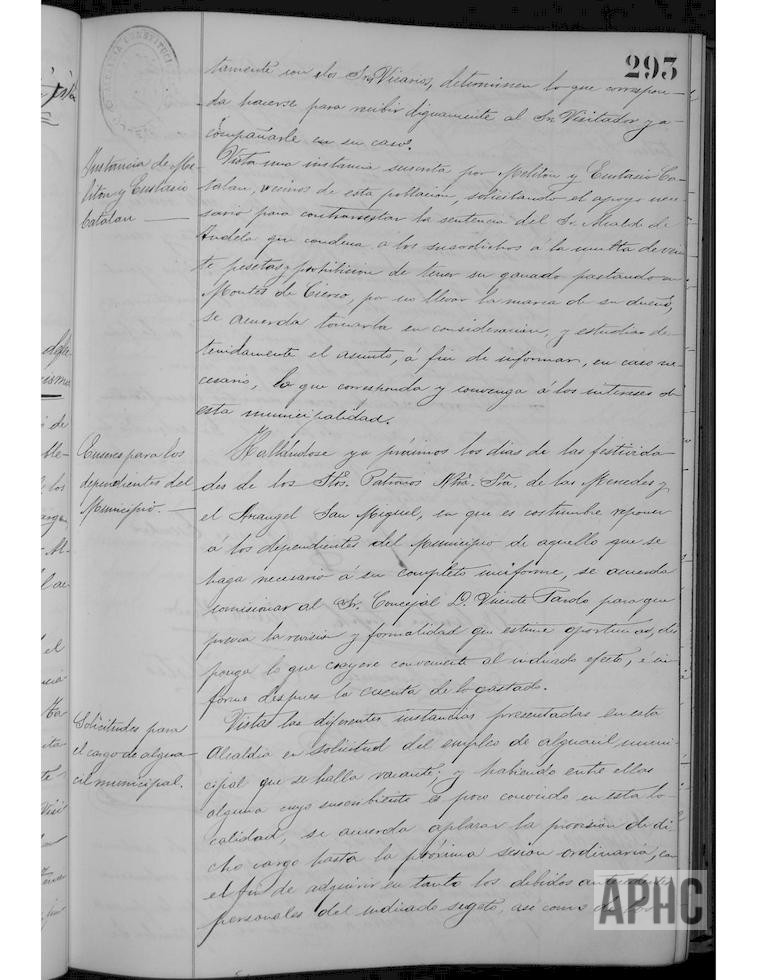 293
tamente con los Sres Vicarios, determinen lo que correspon-
da hacerse para recibir dignamente al Sr. Visitador y a-
compañarle en su caso.
Instancia de Me-
litón y Eustasio
Catalan
Vista una instancia suscrita por Melitón y Eustasio Ca-
talan, vecinos de esta población, solicitando el apoyo nece-
sario para contrarrestar la sentencia del Sr. Alcalde de
que condena a los susodichos a la multa de vein-
te pesetas y prohibicion de tener su ganado pastando en
Montes de Cierzo, por no llevar la marca de su dueño,
se acuerda tomarla en consideracion, y estudiar de-
tenidamente el asunto, á fin de informar, en caso ne-
cesario, lo que corresponda y convenga á los intereses de
esta municipalidad.
Enseres para los
dependientes del
Municipio.
Hallándose ya próximos los dias de las festivida-
des de los Stos. Patronos Ntra. Sra. de las Mercedes y
el Arcangel San Miguel, en que es costumbre reponer
á los dependientes del Municipio de aquello que se
haga necesario á su completo uniforme, se acuerda
comisionar al Sr. Concejal D. Vicente Pardo para que
previa la revision y formalidad que estime oportunas, dis-
ponga lo que creyere conveniente al indicado efecto, é in-
forme despues la cuenta de lo gastado.
Solicitudes para
el cargo de algua-
cil municipal.
Vistas las diferentes instancias presentadas en esta
Alcaldia en solicitud del empleo de alguacil muni-
cipal que se halla vacante; y habiendo entre ellas
alguna cuyo suscribiente es poco conocido en esta lo-
calidad, se acuerda aplazar la provision de di-
cho cargo hasta la próxima sesion ordinaria, con
el fin de adquirir en tanto los debidos antecedentes
personales del indicado sugeto, asi como de los
APHC